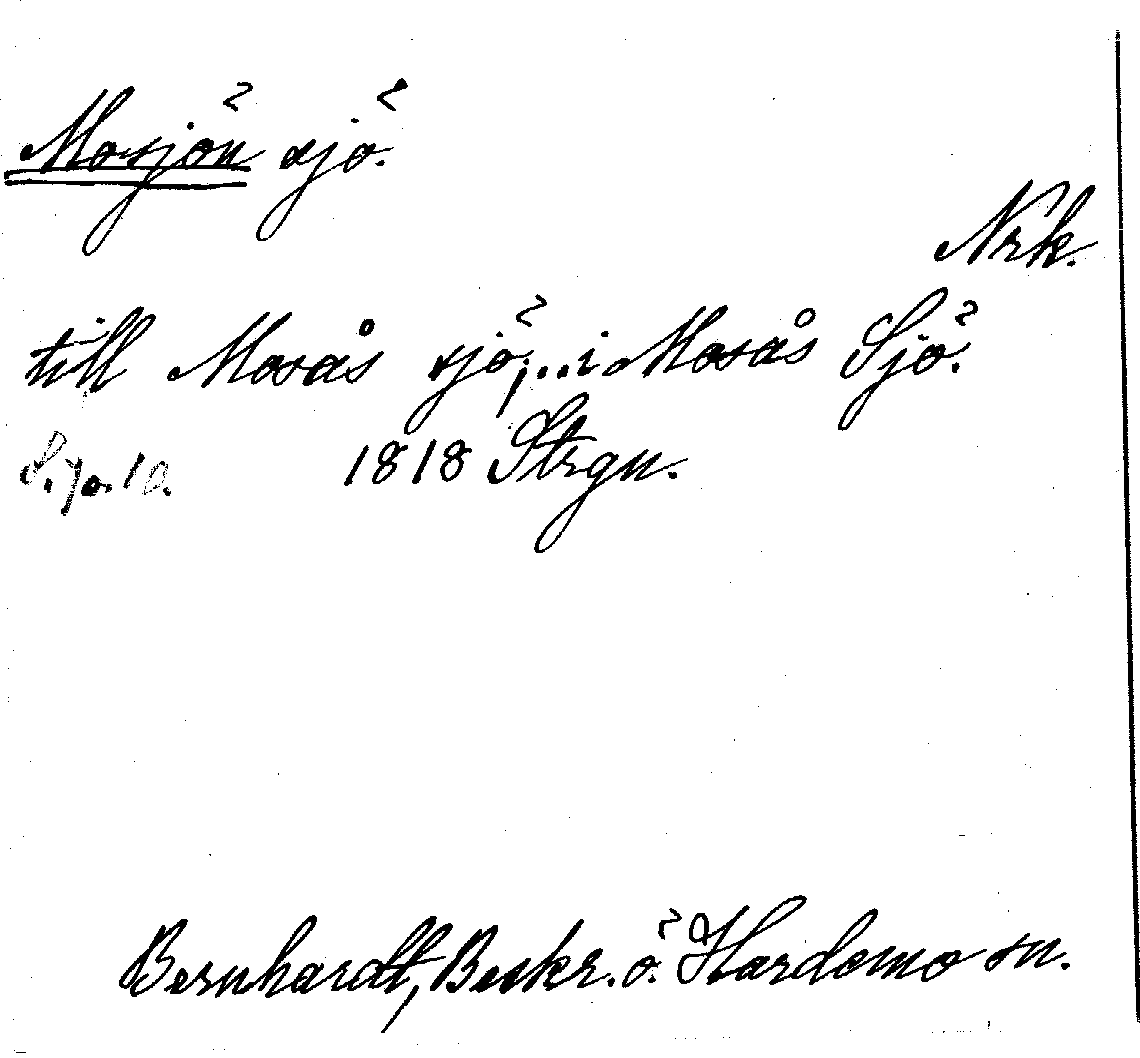 Mosjön sjö.
Nrk.
till Mosås sjö; ... i Mosås Sjö.
1818 Strgn.
Bernhardt, Beskr. ö. Hardemo sn.